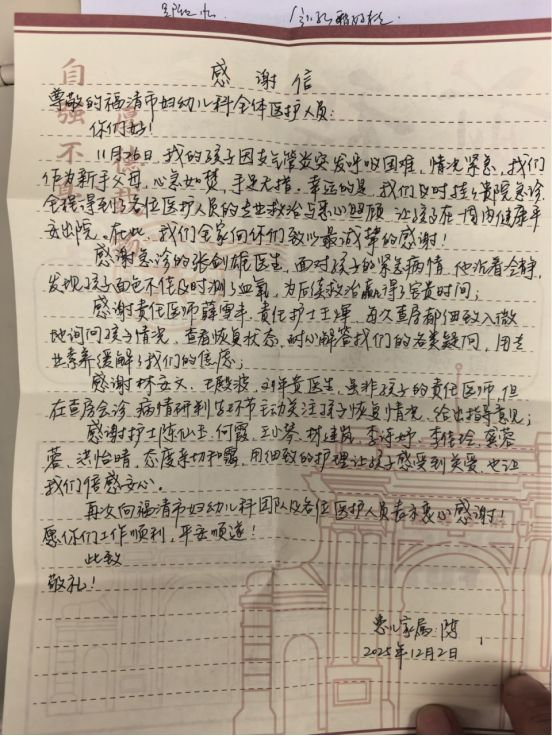 感谢信
尊敬的福清市妇幼儿科全体医护人员:
你们好!
11月26日,我的孩子因支气管炎突发呼吸困难,情况紧急,我们
作为新手父母,心急如焚,手足无措。幸运的是,我们及时挂了贵院急诊,
全程得到了各位医护人员的专业救治与悉心照顾,让孩子在一周内健康平
安出院。在此,我们全家向你们致以最诚挚的感谢!
感谢急诊的张剑雄医生,面对孩子的紧急病情,他沉着冷静,
发现孩子面色不佳及时测了血氧,为后续救治赢得了宝贵时间;
感谢责任医师薛雪平、责任护士王婷,每次查房都细致入微
地询问孩子情况,查看恢复状态,耐心解答我们的各类疑问,用专
业素养缓解了我们的焦虑;
感谢林、王殿、医生,虽非孩子的责任医师,但
在查房会诊、病情研判等环节主动关注孩子恢复情况,给出指导意见;
感谢护士陈仙玉、何霞、王小琴、林建岚、李诗婷、李佳玲、
蓉、洪怡晴,态度亲切和蔼,用细致的护理让孩子感受到关爱,也让
我们倍感安心。
再次向福清市妇幼儿科团队及各位医护人员表示衷心感谢!
愿你们工作顺利,平安顺遂!
此致
敬礼!
患儿家属:陈
2025年12月2日
自强不息